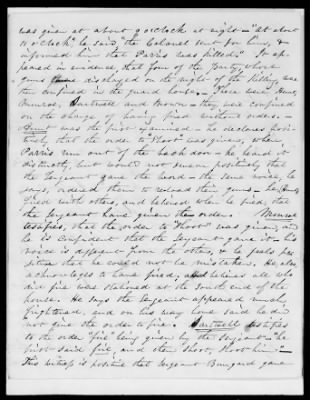 was given at about 9 o'clock at night - "At about
10 o'clock," he said "the Colonel sent for him, &
informed him that Parris was killed." It ap-
peared in evidence, that four of the Party, whose
guns were discharged on the night of the killing were
then confined in the guard house. These were
Munroe, Hartnell and Brown - they were confined
on the charge of having fired without orders. -
Hunt was the first examined - he declares posi-
tively, that the order to "shoot" was given, when
Parris ran out of the back door - he heard it
distinctly, but would not swear positively that
the Sergeant gave the word - the same voice, he
says, ordered them to reload their guns - he
fired with others, and believed when he fired, that
the Sergeant have given the order. Munroe
testifies, that the order to "Shoot" was given, and
he is confident that the Sergeant gave it - his
voice is different from the others, & he feels pos-
itive that he could not be mistaken. He also
acknowledges to have fired, and believes all who
did fire was stationed at the south end of the
house. He says the Sergeant appeared much
frightened, and on his way home said he did
not give the order to fire. Hartnell testifies
to the order "fire" being given by the Sergeant - he
first said fire, and then shoot, shoot him! -
This witness is positive that Sergeant Bungard gave